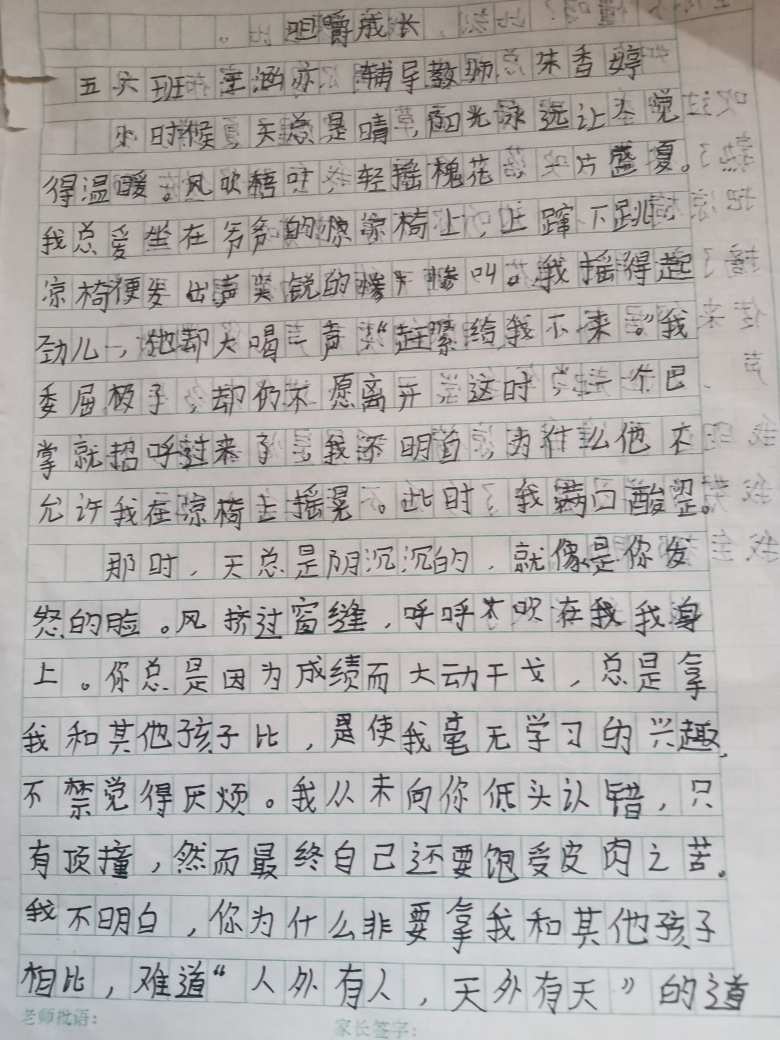 咀嚼成长
五六班 王涵亦 辅导教师 朱香婷
小时候，天总是晴，阳光永远让人觉
得温暖。风吹梧叶，轻摇槐花，一片盛夏。
我总爱坐在爷爷的凉椅上，上蹿下跳，
凉椅便发出声尖锐的惨叫。我摇得起
劲儿，他却大喝一声“赶紧给我下来。”我
委屈极了，却仍不愿离开，这时，一个巴
掌就招呼过来了，我不明白，为什么他不
允许我在凉椅上摇晃。此时，我满口酸涩。
那时，天总是阴沉沉的，就像是你发
怒的脸。风挤过窗缝，呼呼吹在我我身
上。你总是因为成绩而大动干戈，总是拿
我和其他孩子比，是使我毫无学习的兴趣，
不禁觉得厌烦。我从未向你低头认错，只
有顶撞，然而最终自己还要饱受皮肉之苦。
我不明白，你为什么非要拿我和其他孩子
相比，难道“人外有人，天外有天”的道
老师批语： 家长签字：